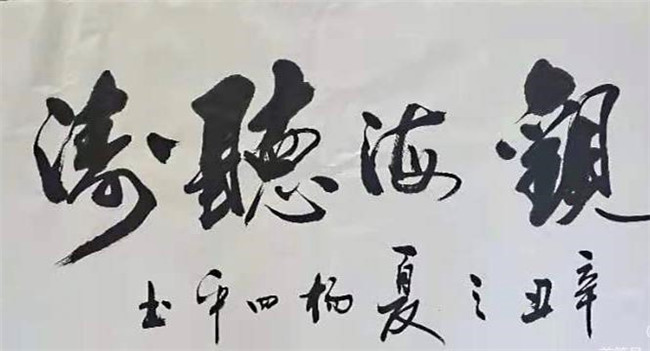 觀海聽濤
辛丑之夏杨四平书